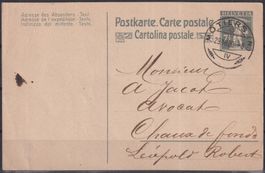 Adresse des Absenders - Text.
Adresse de l'expéditeur - Texte.
Indirizzo del mittente. - Testo.
Postkarte. Carte postale
Cartolina postale
HELVETIA
MOTIERS
Monsieur
A Jacot
Avocat
Chaux de fonds
Léopold Robert